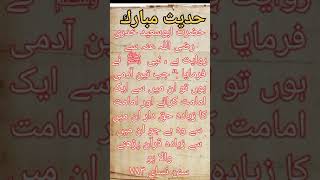 حدیث مبارک
حضرت ابوسعید خدری
رضی اللہ عنہ سے
روایت ہے ، نبی ﷺ نے
فرمایا :" جب تین آدمی
ہوں تو ان میں سے ایک
امامت کرائے اور امامت
کا زیادہ حق دار ان میں
سے وہ ہے جو ان میں
سے زیادہ قرآن پڑھنے
والا ہو
سنن نسائی